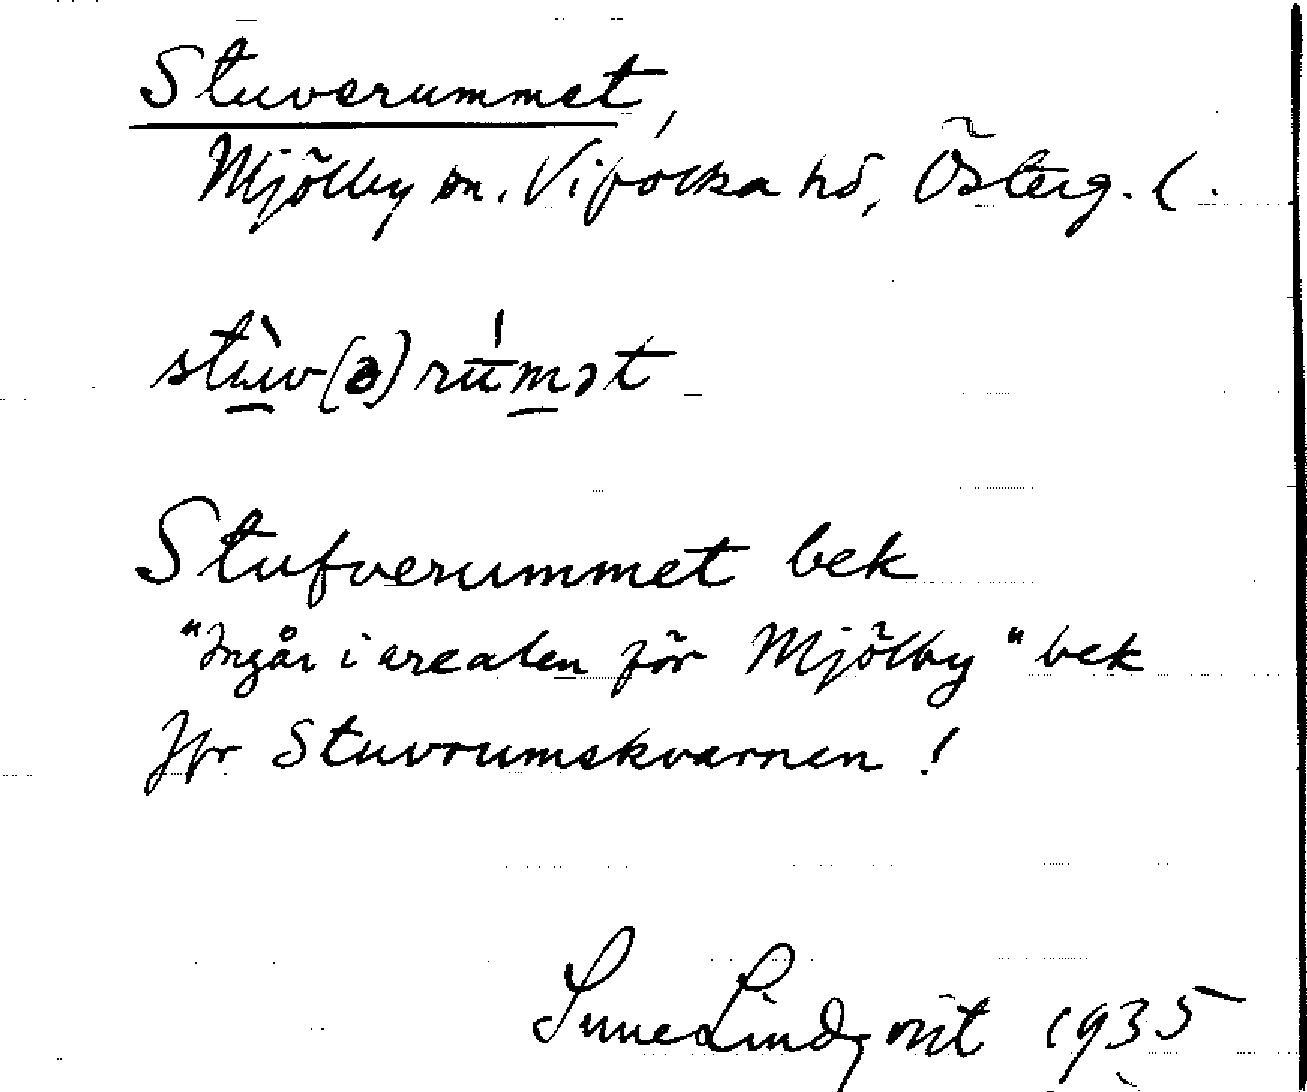 Stuverummet,
Mjölby sn. Vifolka hd, Österg. l.
stùw(ə)rúmət
Stufverummet bek
"Ingår i arealen för Mjölby" bek
Jfr Stuvrumskvarnen !
Sune Lindqvist 1935